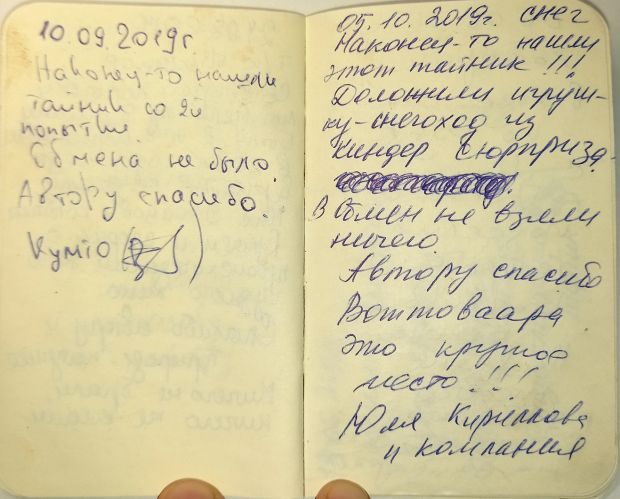 10.09.2019г.
Наконец-то нашли
тайник со 2й
попытки.
Обмена не было.
Автору спасибо.
05.10.2019г. снег
Наконец-то нашли
этот тайник!!!
Доложили игруш-
ку-снегоход из
Киндер сюрприза.
В обмен не взяли
ничего
Автору спасибо
Воттоваара
это крутое
место!!!
Юля Кириллова
и компания